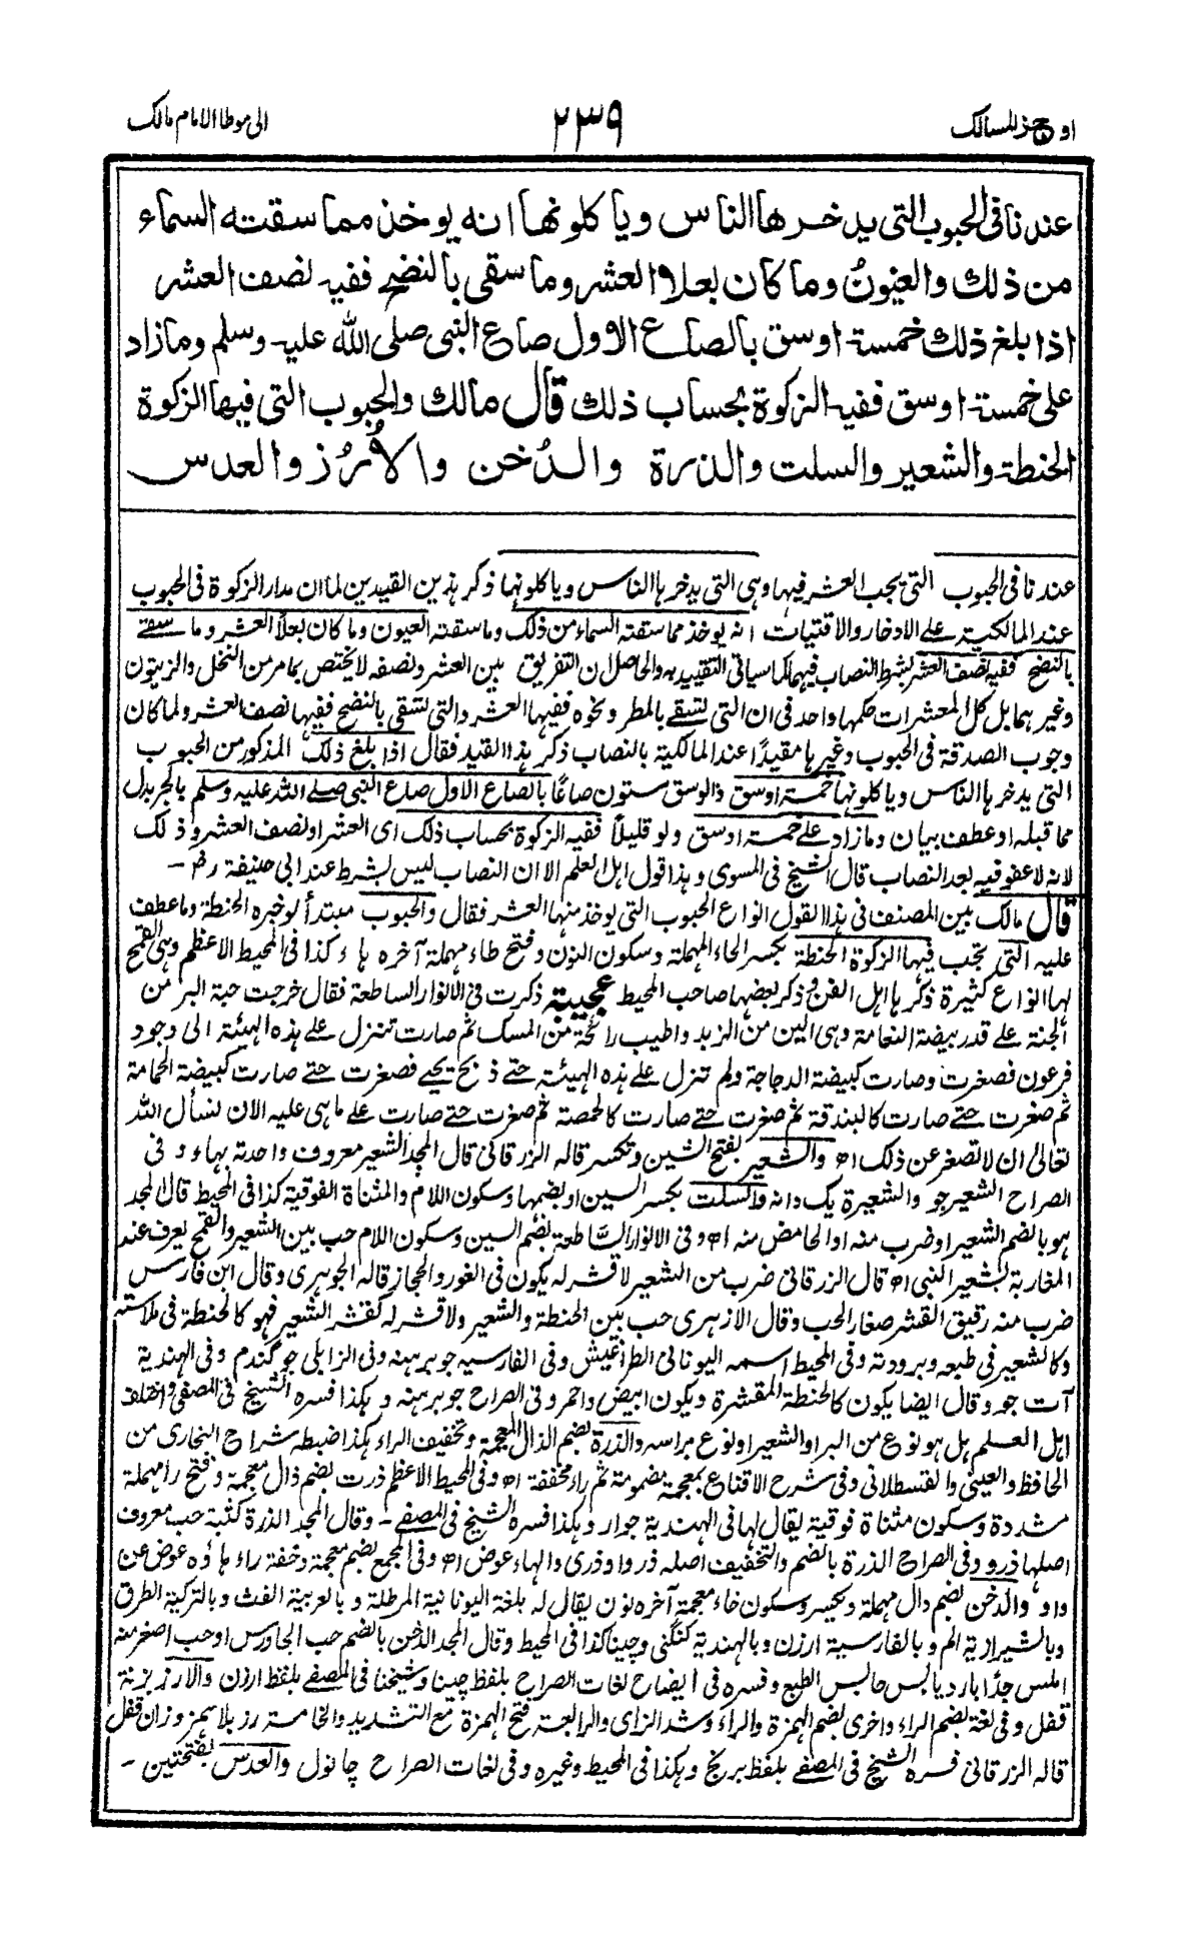 اوجز المسالك ٢٣٩ الى موطا الامام مالك
عندنا فى الحبوب التى يدخرها الناس وياكلونها انه يوخذ مما سقته السماء
من ذلك والعيون وما كان بعلا العشر وما سقى بالنضح ففيه نصف العشر
اذا بلغ ذلك خمسة اوسق بالصاع الاول صاع النبى صلى الله عليه وسلم وما زاد
على خمسة اوسق ففيه الزكوة بحساب ذلك قال مالك والحبوب التى فيها الزكوة
الحنطة والشعير والسلت والذرة والدُخن والاُرُز والعدس
عندنا فى الحبوب التى يجب العشر فيها وهى التى يدخرها الناس وياكلونها ذكر هذين القيدين لما ان مدار الزكوة فى الحبوب
عند المالكية على الادخار والاقتيات انه يوخذ مما سقته السماء من ذلك وما سقته العيون وما كان بعلاً العشر وما سقے
بالنضح ففيه نصف العشر بشرط النصاب فيهما كما سياتى التقييد به والحاصل ان التفريق بين العشر ونصفه لا يختص بما مر من النخل والزيتون
وغيرهما بل كل المعشرات حكمها واحد فى ان التى تسقے بالمطر ونحوه ففيها العشر والتى تسقى بالنضح ففيها نصف العشر ولما كان
وجوب الصدقة فى الحبوب وغيرها مقيدًا عند المالكية بالنصاب ذكر هذا القيد فقال اذا بلغ ذلك المذكور من الحبوب
التى يدخرها الناس وياكلونها خمسة اوسق والوسق ستون صاعًا بالصاع الاول صاع النبى صلے الله عليه وسلم بالجر بدل
مما قبله او عطف بيان وما زاد علے خمسة اوسق ولو قليلاً ففيه الزكوة بحساب ذلك اى العشر او نصف العشر وذلك
لانه لا عفو فيه بعد النصاب قال الشيخ فى المسوى وهذا قول اهل العلم الا ان النصاب ليس بشرط عند ابى حنيفة رح ـ
قال مالك بين المصنف فى هذا القول انواع الحبوب التى يوخذ منها العشر فقال والحبوب مبتدأ وخبره الحنطة وما عطف
عليه التى تجب فيها الزكوة الحنطة بكسر الحاء المهملة وسكون النون وفتح طاء مهملة آخره هاء كذا فى المحيط الاعظم وهى القمح
لها انواع كثيرة ذكرها اهل الفن وذكر بعضها صاحب المحيط عجيبة ذكرت فى الانوار الساطعة فقال خرجت حبة البر من
الجنة علے قدر بيضة النعامة وهى الين من الزبد واطيب رائحة من المسك ثم صارت تنزل علے هذه الهيئة الى وجود
فرعون فصغرت وصارت كبيضة الدجاجة ولم تنزل علے هذه الهيئة حتے ذبح يحيے فصغرت حتے صارت كبيضة الحمامة
ثم صغرت حتے صارت كالبندقة ثم صغرت حتے صارت كالحمصة ثم صغرت حتے صارت علے ما هى عليه الان نسأل الله
تعالى ان لا تصغر عن ذلك اه والشعير بفتح الشين وتكسر قاله الزرقانى قال المجد الشعير معروف واحدته بهاء وفى
الصراح الشعير جو والشعيرة يك دانه والسلت بكسر السين او بضمها وسكون اللام والمثناة الفوقية كذا فى المحيط قال المجد
هو بالضم الشعير او ضرب منه او الحامض منه اه وفى الانوار الساطعة بضم السين وسكون اللام حب بين الشعير والقمح يعرف عند
المغاربة بشعير النبى اه قال الزرقانى ضرب من الشعير لا قشر له يكون فى الغور والحجاز قاله الجوهرى وقال ابن فارس
ضرب منه رقيق القشر صغار الحب وقال الازهرى حب بين الحنطة والشعير ولا قشر له كقشر الشعير فهو كالحنطة فى ملاسته
وكالشعير فى طبعه وبرودته وفى المحيط اسمه اليونانى الطراغيش وفى الفارسيه جو برهنه وفى الزابلى جو گندم وفى الهندية
آت جو وقال ايضا يكون كالحنطة المقشرة ويكون ابيض واحمر وفى الصراح جو برهنه وهكذا فسره الشيخ فى المصفى واختلف
اهل العلم هل هو نوع من البر او الشعير او نوع براسه والذرة بضم الذال المعجمة وتخفيف الراء هكذا ضبطه شراح البخارى من
الحافظ والعينى والقسطلانى وفى شرح الاقناع بمعجمة مضمومة ثم راء مخففة اه وفى المحيط الاعظم ذرت بضم ذال معجمة وفتح را مهملة
مشددة وسكون مثناة فوقية يقال لها فى الهندية جوار وهكذا فسره الشيخ فى المصفے ـ وقال المجد الذرة كثبة حب معروف
اصلها ذرو وفى الصراح الذرة بالضم والتخفيف اصله ذرو او ذرى والهاء عوض اه وفى المجمع بضم معجمة وخفة راء هاؤه عوض عن
واو والدخن بضم دال مهملة وتكسر وسكون خاء معجمة آخره نون يقال له بلغة اليونانية المرطلة وبالعربية الفث وبالتركية الطرق
وبالشيرازية الم وبالفارسية ارزن وبالهندية كنگنى وچينا كذا فى المحيط وقال المجد الدخن بالضم حب الجاورس او حب اصغر منه
املس جدًا بارد يابس حابس الطبع وفسره فى ايضاح لغات الصراح بلفظ چينا وشيخنا فى المصفے بلفظ ارزن والارز بزنة
قفل وفى لغة بضم الراء واخرى بضم الهمزة والراء وشد الزاى والرابعة فتح الهمزة مع التشديد والخامسة رز بلا همز وزان قفل
قاله الزرقانى فسره الشيخ فى المصفے بلفظ برنج وهكذا فى المحيط وغيره وفى لغات الصراح چانول والعدس بفتحتين ـ